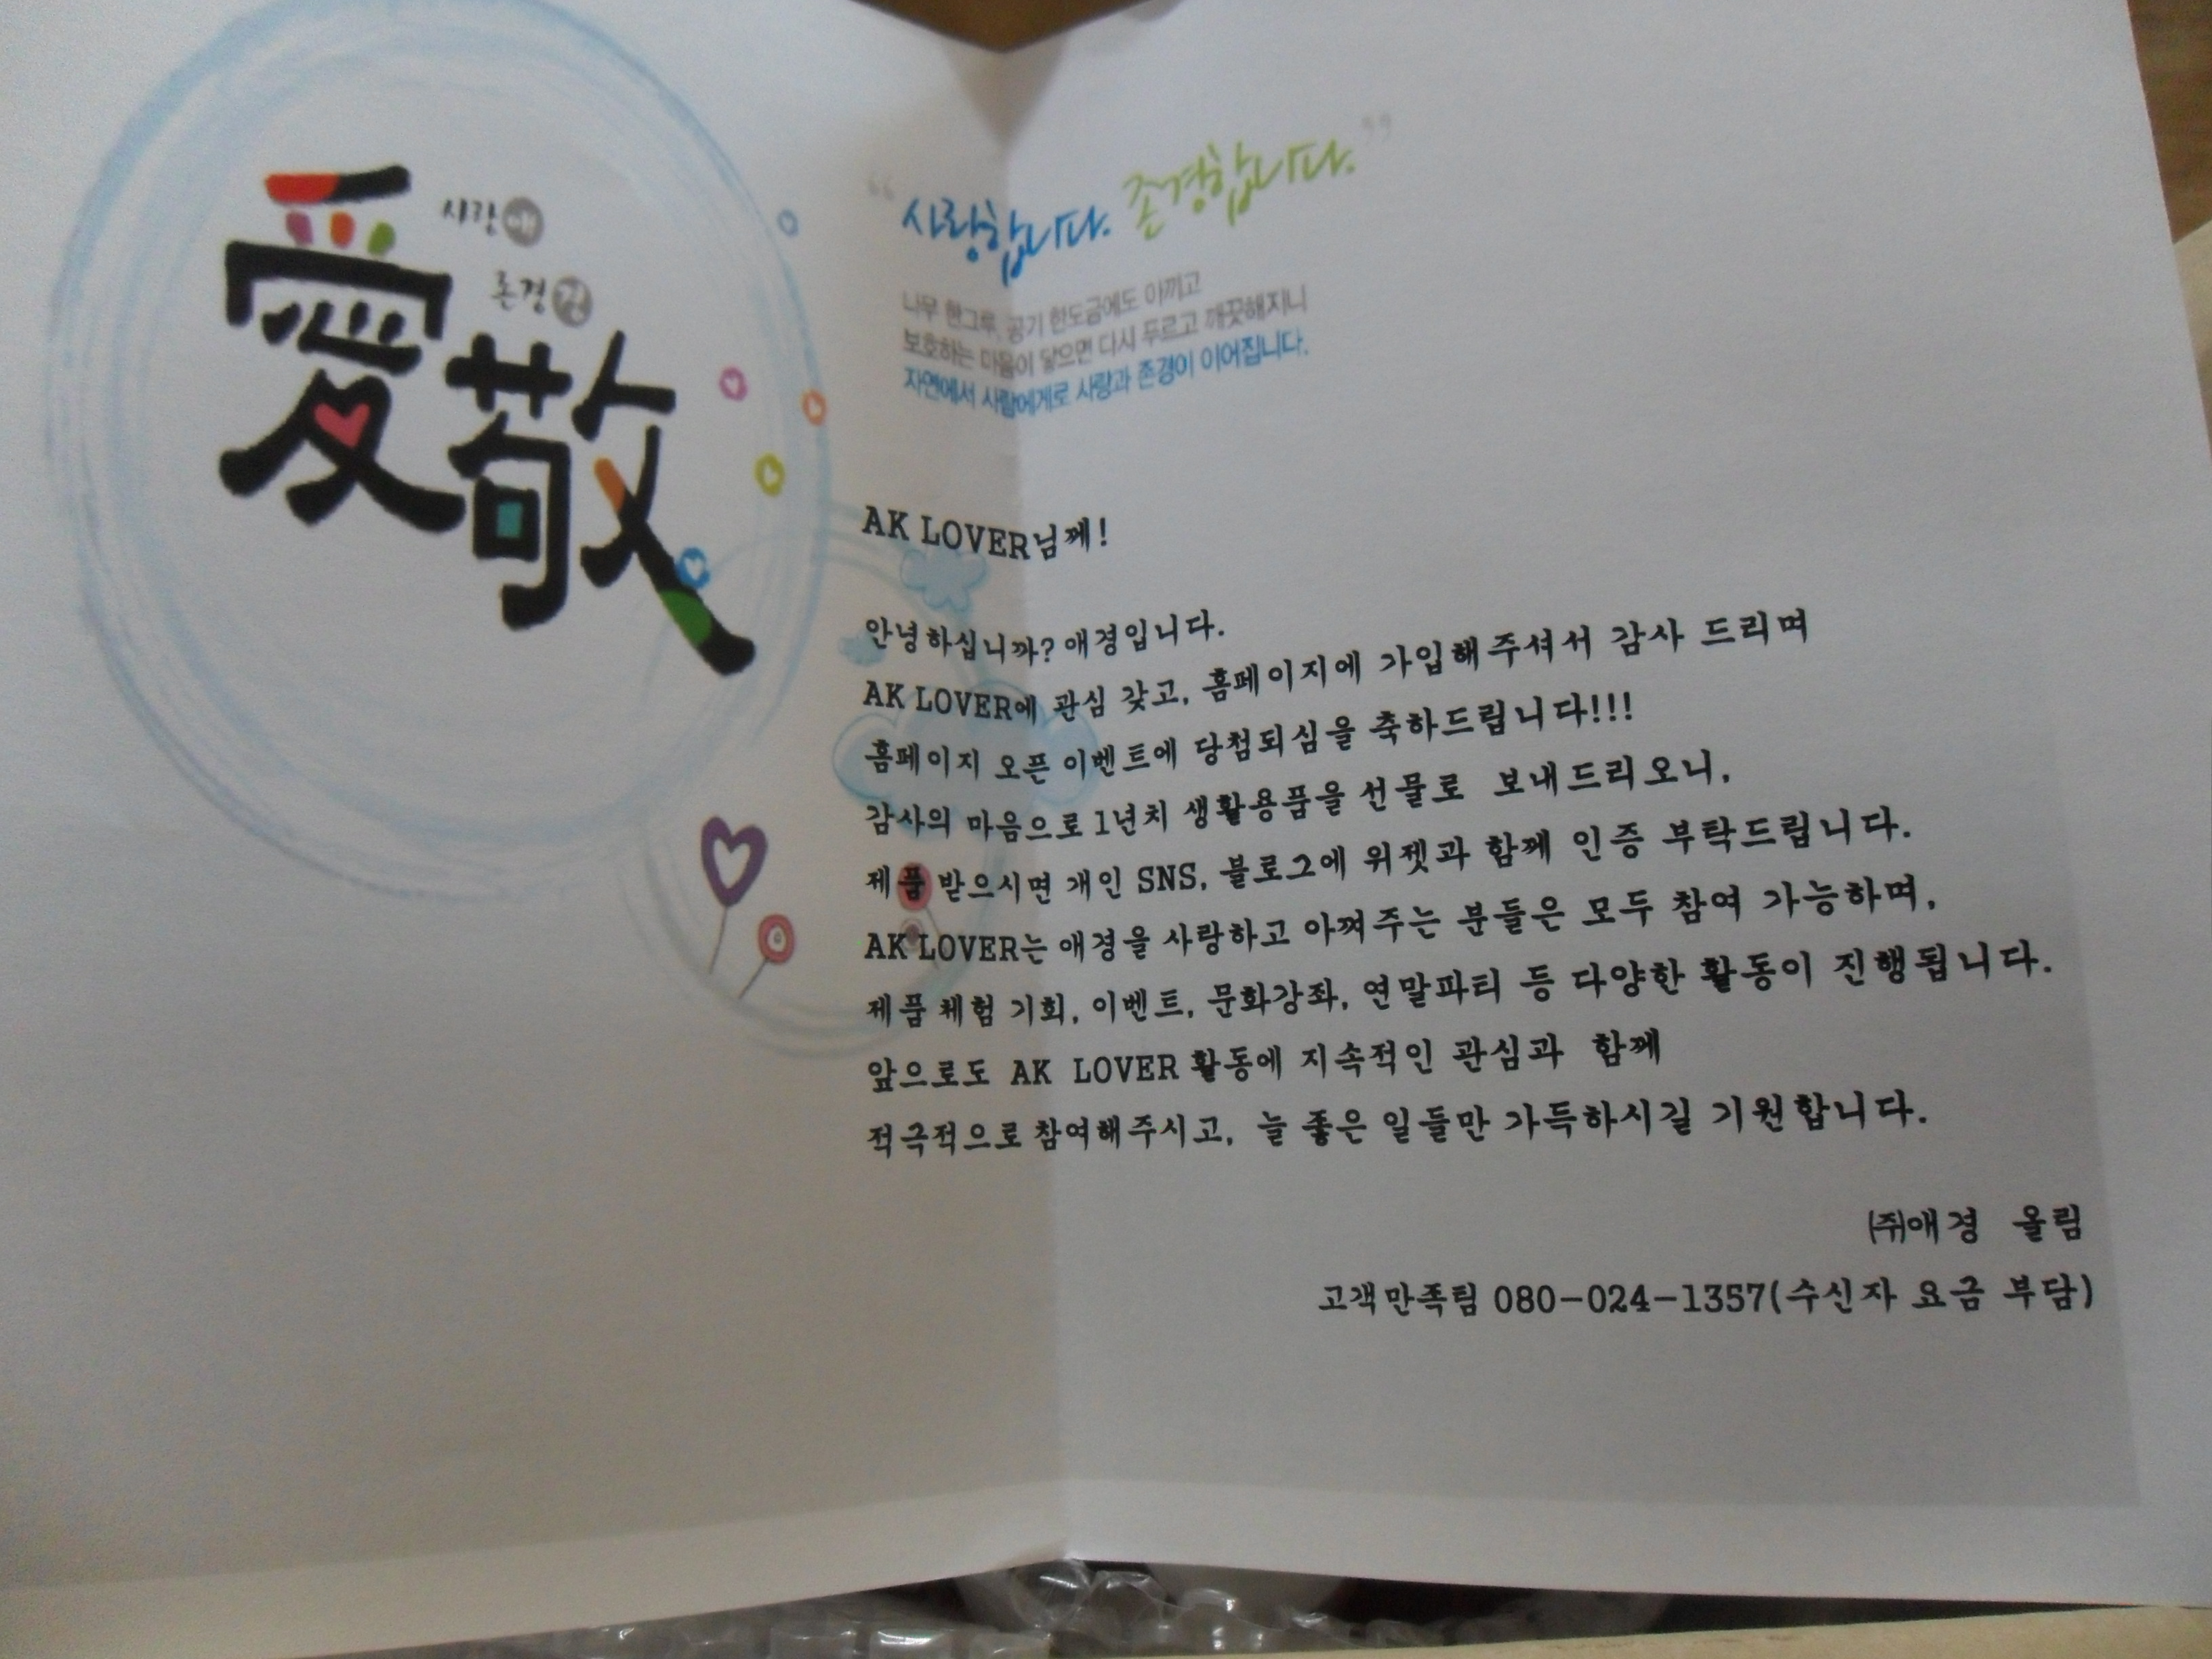 사랑 애
존경 경
愛敬
“사랑합니다. 존경합니다.”
나무 한그루, 공기 한모금에도 아끼고
보호하는 마음이 닿으면 다시 푸르고 깨끗해지니
자연에서 사람에게로 사랑과 존경이 이어집니다.
AK LOVER님께!
안녕하십니까? 애경입니다.
AK LOVER에 관심 갖고, 홈페이지에 가입해주셔서 감사 드리며
홈페이지 오픈 이벤트에 당첨되심을 축하드립니다!!!
감사의 마음으로 1년치 생활용품을 선물로 보내드리오니,
제품 받으시면 개인 SNS, 블로그에 위젯과 함께 인증 부탁드립니다.
AK LOVER는 애경을 사랑하고 아껴주는 분들은 모두 참여 가능하며,
제품 체험 기회, 이벤트, 문화강좌, 연말파티 등 다양한 활동이 진행됩니다.
앞으로도 AK LOVER 활동에 지속적인 관심과 함께
적극적으로 참여해주시고, 늘 좋은 일들만 가득하시길 기원합니다.
㈜애경 올림
고객만족팀 080-024-1357(수신자 요금 부담)